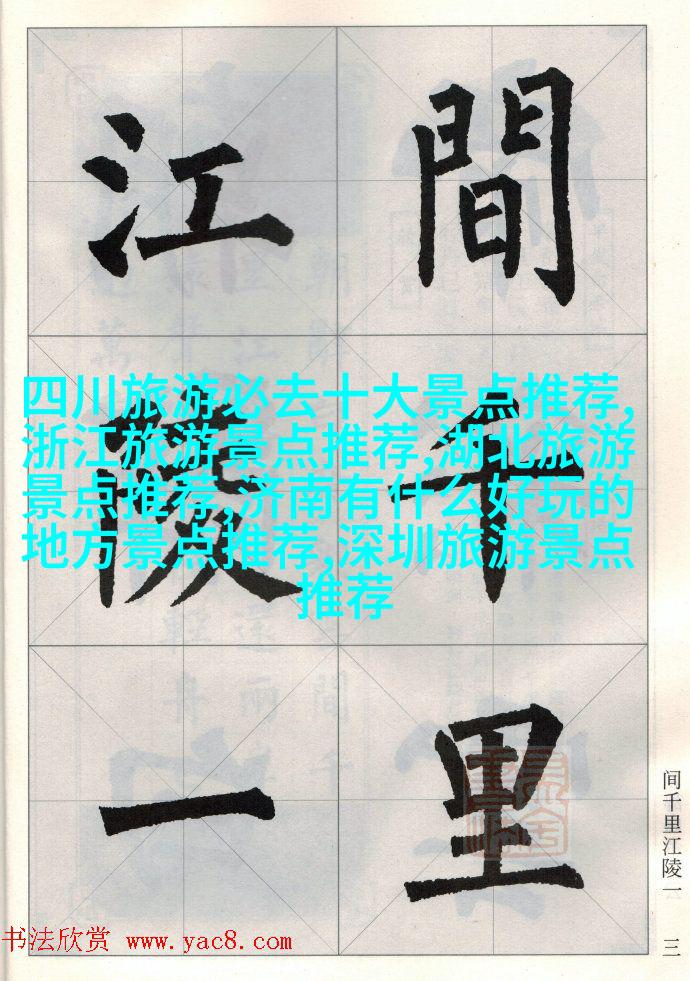 間千里
江陵一
四川旅游必去十大景点推荐,
浙江旅游景点推荐,湖北旅游
景点推荐,济南有什么好玩的
地方景点推荐,深圳旅游景点
推荐
间千里江陵一
三
书法欣赏 www.yac8.com